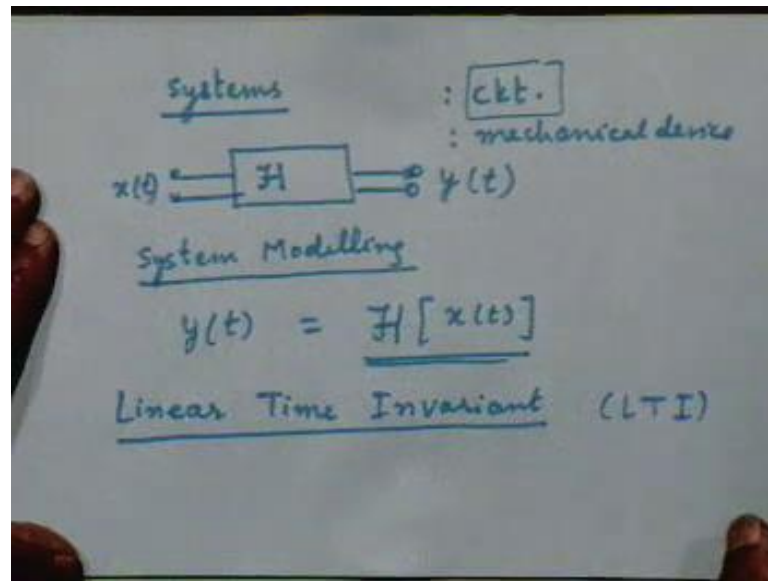 systems : ckt.
: mechanical device
x(t) H y(t)
System Modelling
y(t) = H[x(t)]
Linear Time Invariant (LTI)